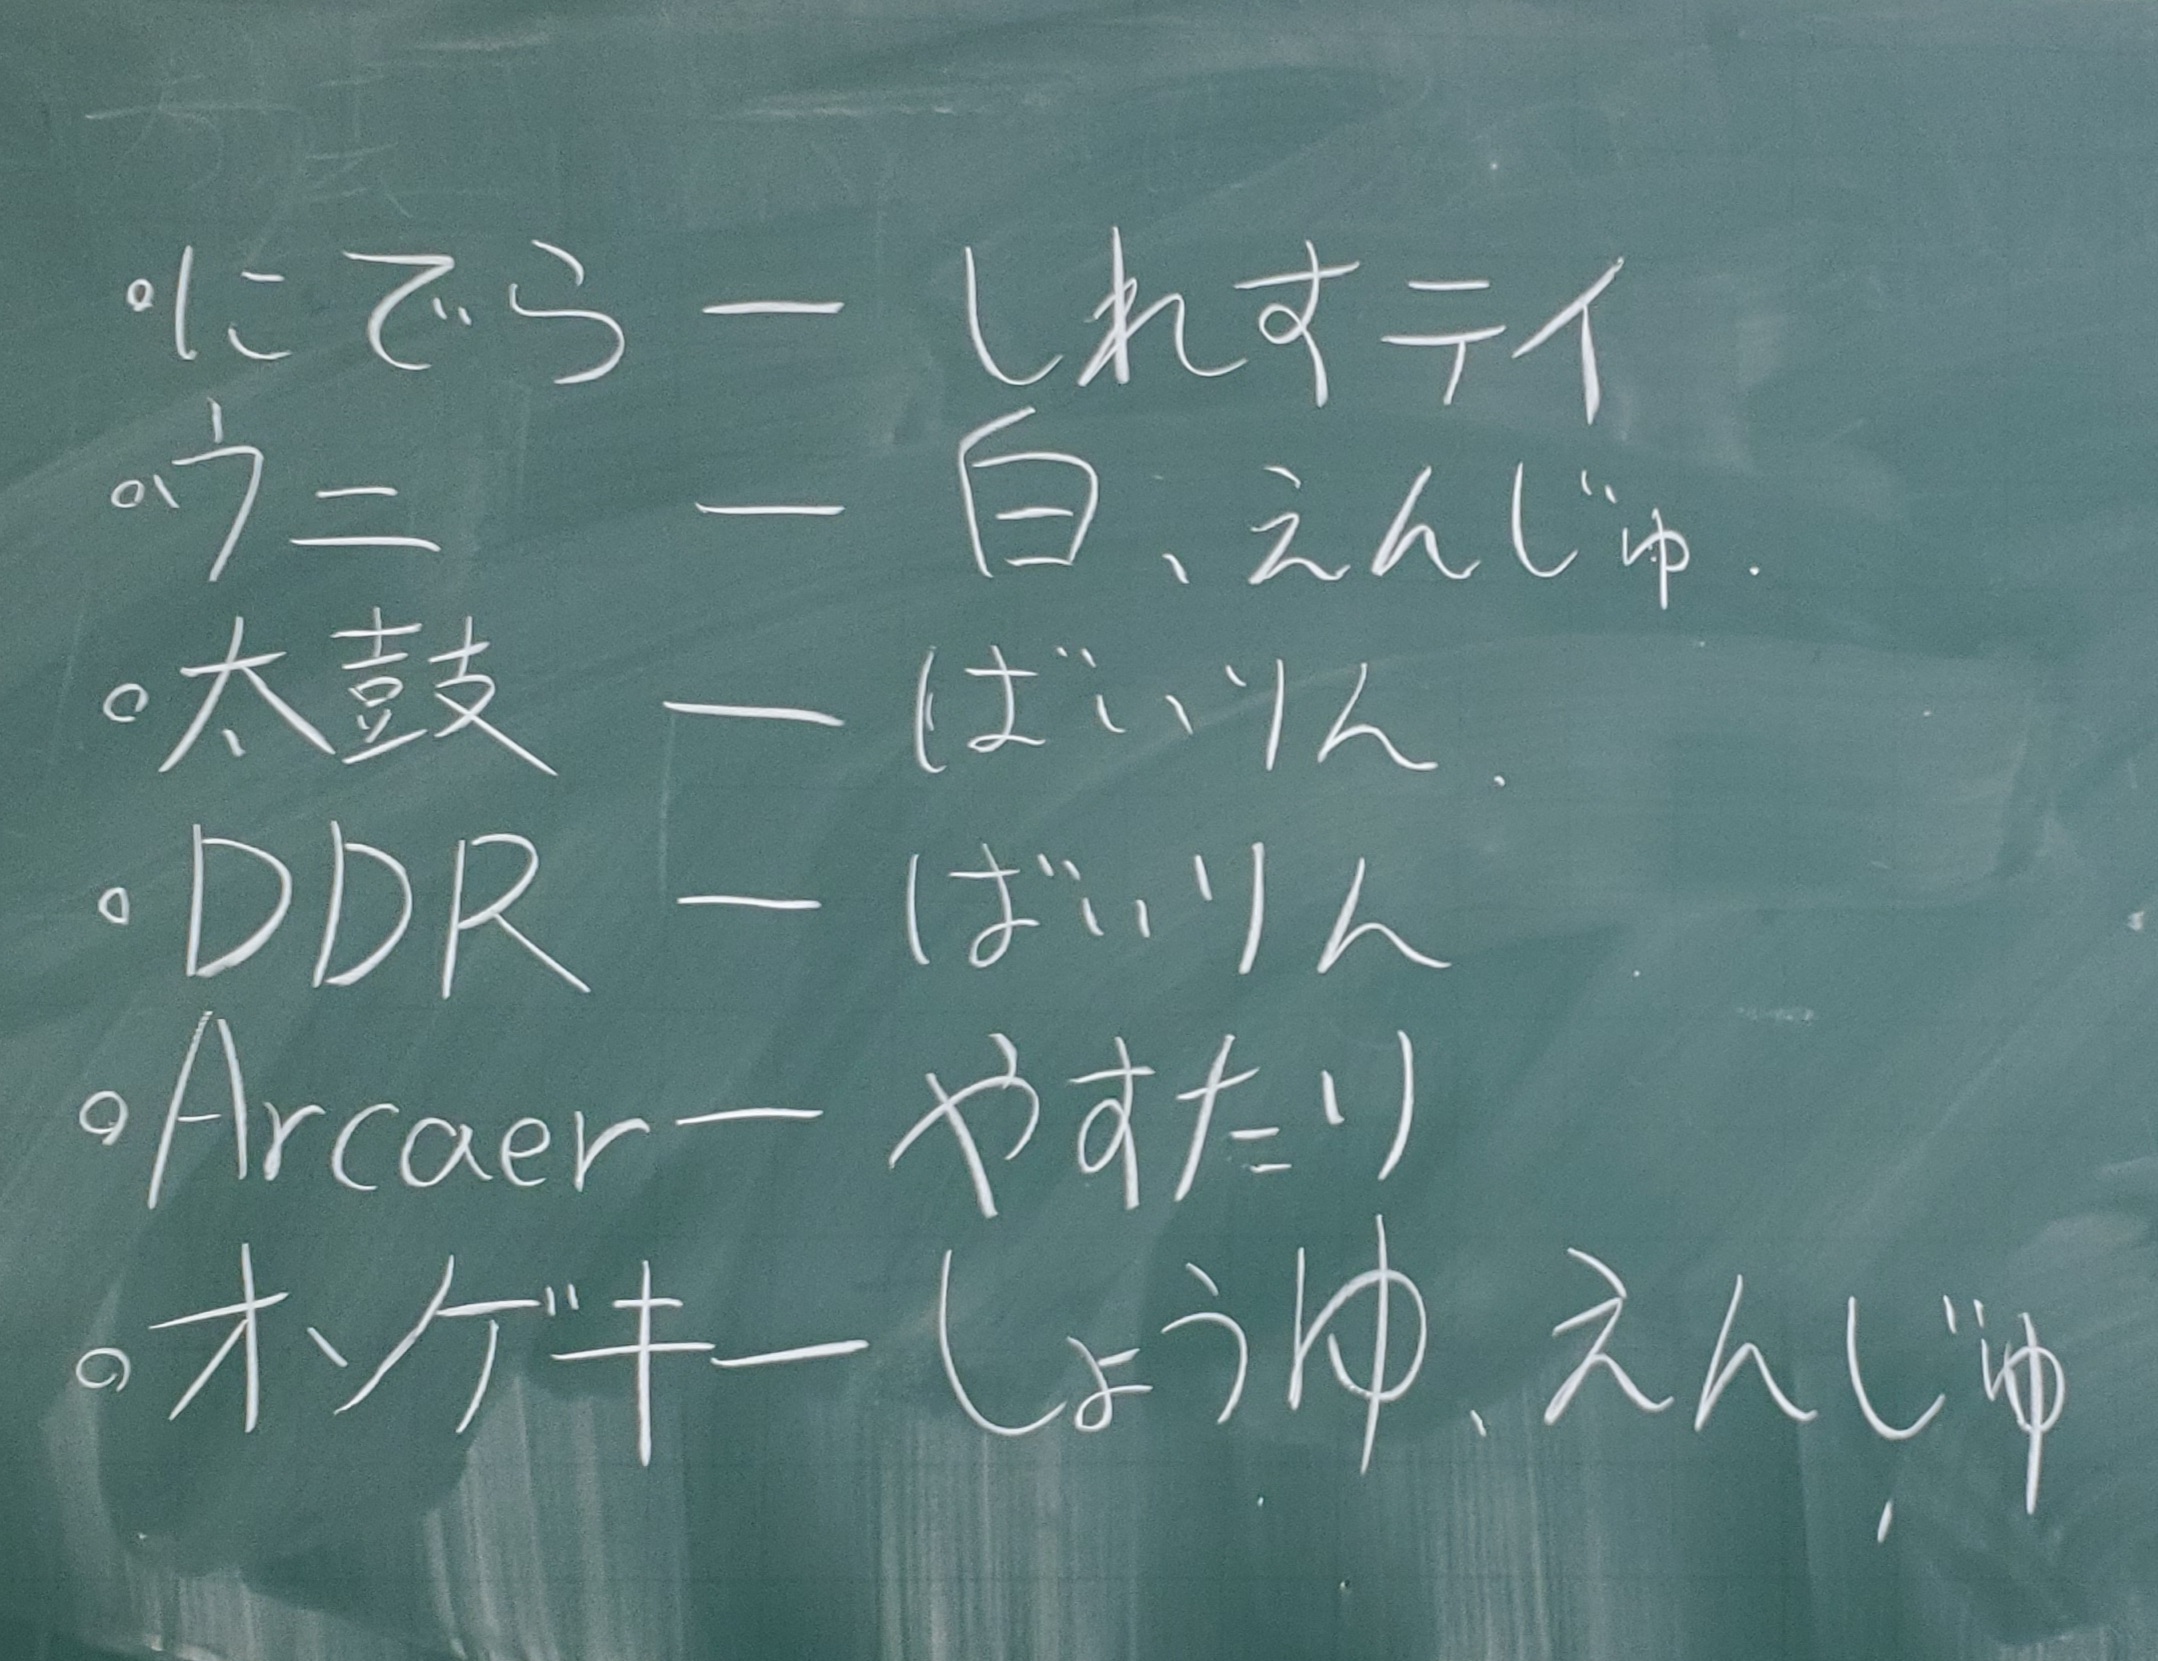 ・にでら ー しれすティ
・ウニ ー 白、えんじゅ.
・太鼓 ー ばいりん.
・DDR ー ばいりん
・Arcaer ー やすたり
・オンゲキ ー しょうゆ、えんじゅ